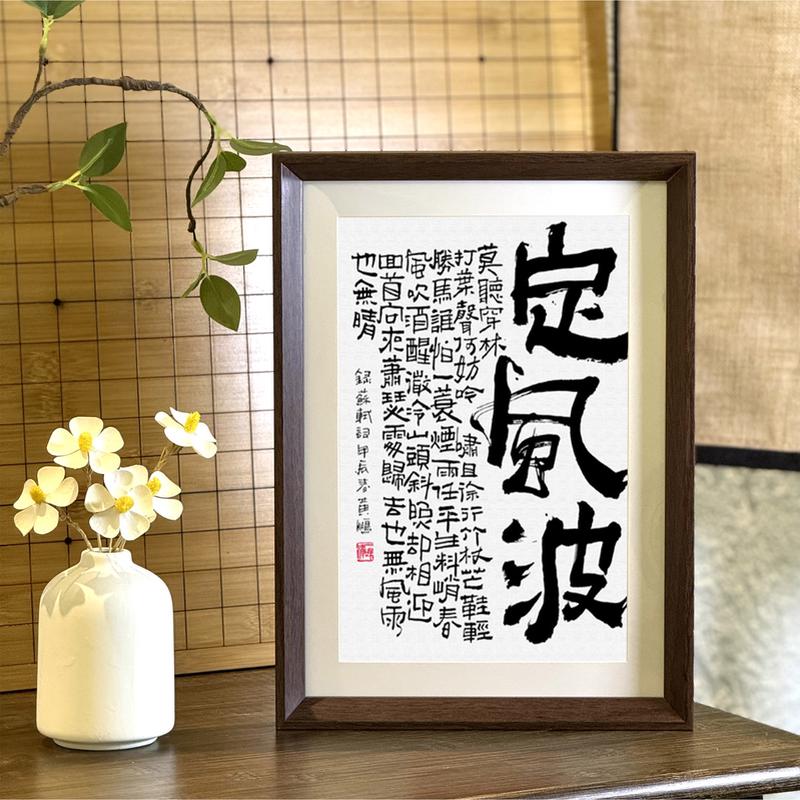 定風波
莫聽穿林
打葉聲何妨吟嘯且徐行竹杖芒鞋輕
勝馬誰怕一蓑煙雨任平生料峭春
風吹酒醒微冷山頭斜晚却相迎
回首向來蕭瑟處歸去也無風雨
也無晴
録蘇軾詞甲辰春黃鵬